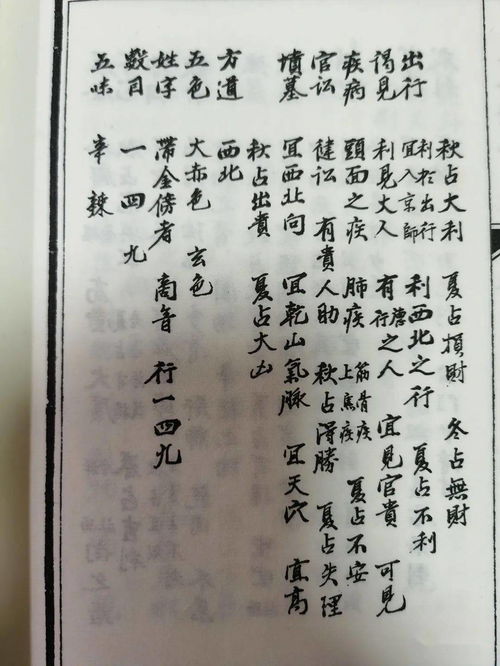 秋占大利 夏占損財 冬占無財
出行 利於出行 宜入京師 利西北之行 夏占不利
謁見 利見大人 有德行之人 宜見官貴 可見
疾病 頭面之疾 肺疾 筋骨疾 上焦疾 夏占不安
官訟 健訟 有貴人助 秋占得勝 夏占失理
墳墓 宜西北向 宜乾山氣脈 宜天穴 宜高
秋占出貴 夏占大凶
方道 西北
五色 大赤色 玄色
姓字 帶金傍者 商音 行一四九
數目 一 四 九
五味 辛辣